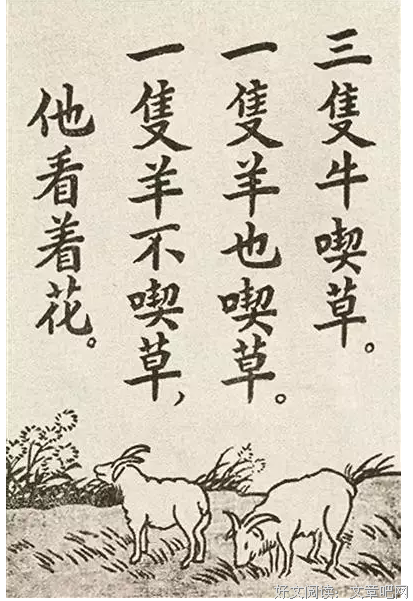 三隻牛喫草。
一隻羊也喫草。
一隻羊不喫草，
他看着花。
好文阅读：文章吧网